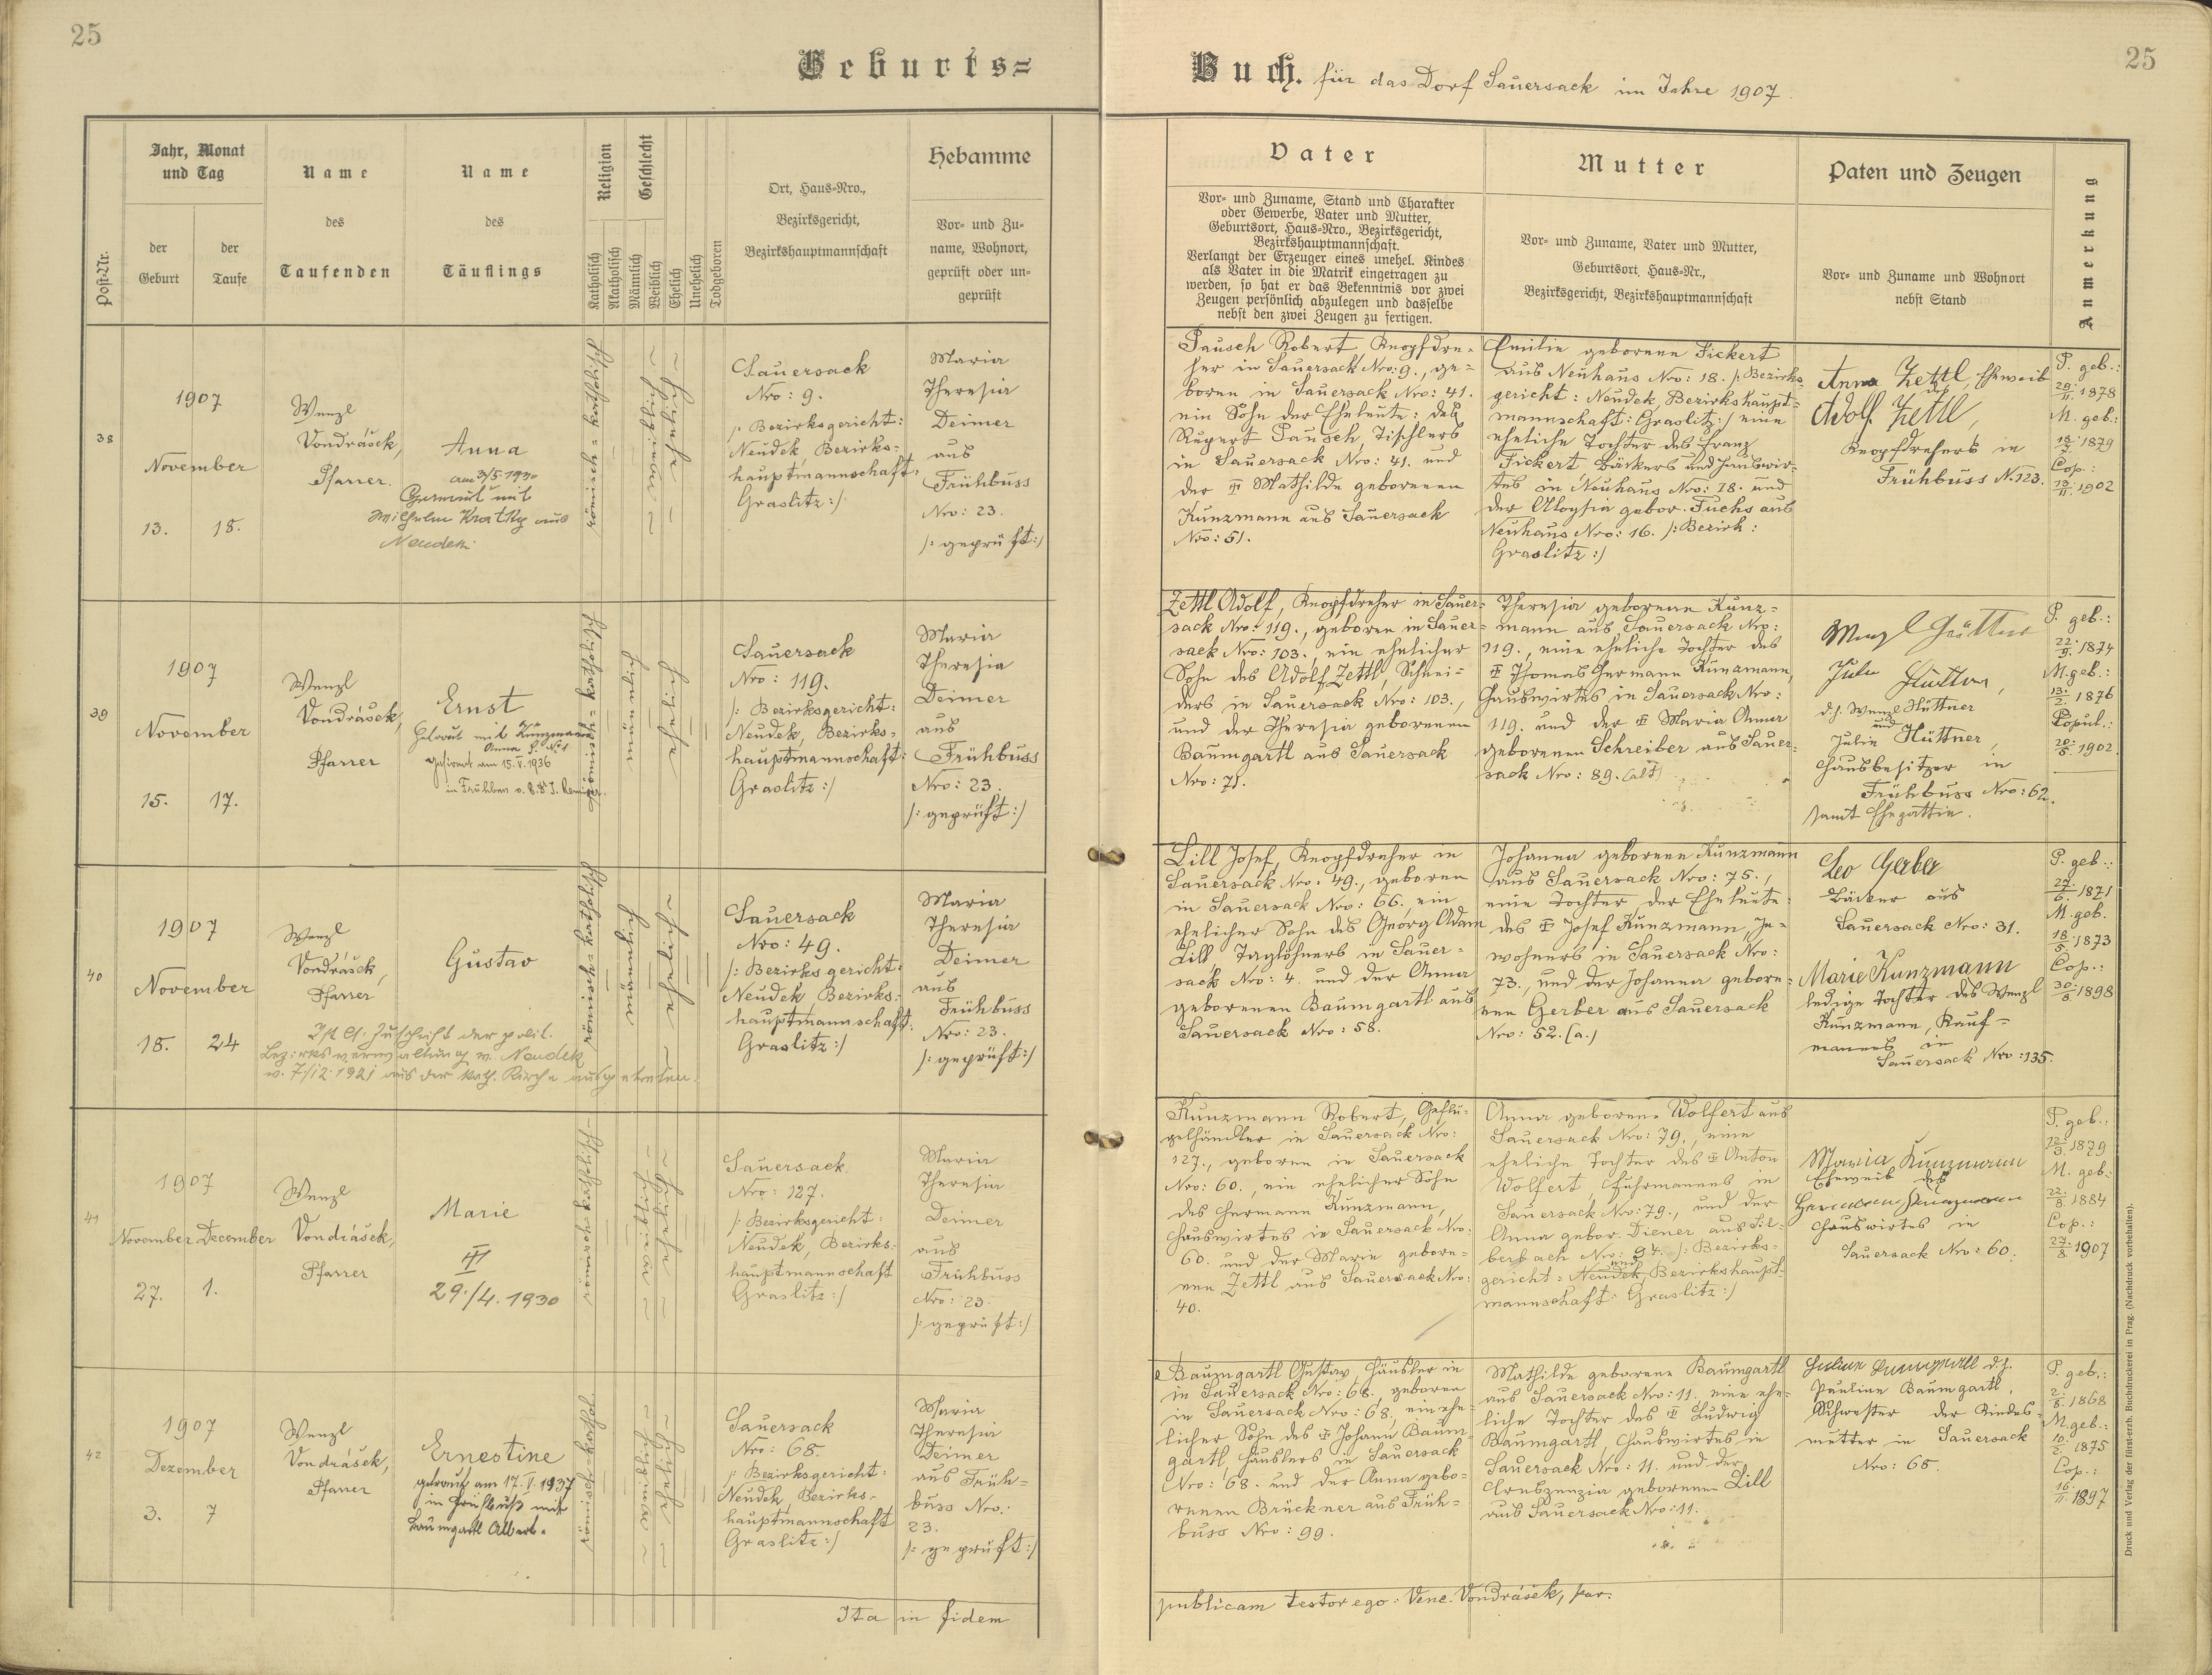 25
Geburts=
Jahr, Monat
und Tag
Name
Name
Religion
Geschlecht
Ort, Haus=Nro.,
Bezirksgericht,
Bezirkshauptmannschaft
Hebamme
Post=Nr.
der
Geburt
der
Taufe
des
Taufenden
des
Täuflings
Katholisch
Akatholisch
Männlich
Weiblich
Ehelich
Unehelich
Todgeboren
Vor= und Zu=
name, Wohnort,
geprüft oder un=
geprüft
38
1907
November
13. 18.
Wenzl
Vondrášek,
Pfarrer.
Anna
am 3/5. 1930
Getraut mit
Wilhelm Kratky aus
Neudek
römisch=katholisch
Sauersack
Nro: 9.
/: Bezirksgericht:
Neudek, Bezirks=
hauptmannschaft:
Graslitz:/
Maria
Theresia
Deimer
aus
Frühbuss
Nro: 23.
/: geprüft:/
39
1907
November
15. 17.
Wenzl
Vondrášek,
Pfarrer
Ernst
Getraut mit Kunzmann
Anna
am 15.V.1936
in Frühbus
römisch=katholisch
Sauersack
Nro: 119.
/: Bezirksgericht:
Neudek, Bezirks=
hauptmannschaft:
Graslitz:/
Maria
Theresia
Deimer
aus
Frühbuss
Nro: 23.
/: geprüft:/
40
1907
November
18. 24
Wenzl
Vondrášek,
Pfarrer
Gustav
Ist lt. Zuschrift der polit.
Bezirksverwaltung in Neudek
v. 7./12. 1921 aus der kath. Kirche ausgetreten.
römisch=katholisch
Sauersack
Nro: 49.
/: Bezirksgericht:
Neudek Bezirks=
hauptmannschaft:
Graslitz:/
Maria
Theresia
Deimer
aus
Frühbuss
Nro: 23.
/: geprüft:/
41
1907
November December
27. 1.
Wenzl
Vondrášek,
Pfarrer
Marie
III
29./4. 1930
römisch=katholisch
Sauersack
Nro: 127.
/: Bezirksgericht:
Neudek, Bezirks=
hauptmannschaft
Graslitz:/
Maria
Theresia
Deimer
aus
Frühbuss
Nro: 23.
/: geprüft:/
42
1907
Dezember
3. 7
Wenzl
Vondrášek,
Pfarrer
Ernestine
getraut am 17.I.1937
in Frühbuß mit
Baumgartl Albert.
römisch=kathol.
Sauersack
Nro: 68.
/: Bezirksgericht:
Neudek, Bezirks=
hauptmannschaft
Graslitz:/
Maria
Theresia
Deimer
aus Früh=
buss Nro:
23.
/: geprüft:/
Ita in fidem
25
Buch. für das Dorf Sauersack im Jahre 1907.
Vater
Mutter
Paten und Zeugen
Anmerkung
Vor= und Zuname, Stand und Charakter
oder Gewerbe, Vater und Mutter,
Geburtsort, Haus=Nro., Bezirksgericht,
Bezirkshauptmannschaft.
Verlangt der Erzeuger eines unehel. Kindes
als Vater in die Matrik eingetragen zu
werden, so hat er das Bekenntnis vor zwei
Zeugen persönlich abzulegen und dasselbe
nebst den zwei Zeugen zu fertigen.
Vor= und Zuname, Vater und Mutter,
Geburtsort, Haus=Nr.,
Bezirksgericht, Bezirkshauptmannschaft
Vor= und Zuname und Wohnort
nebst Stand
Pausch Robert Knopfdre=
her in Sauersack Nro: 9., ge=
boren in Sauersack Nro: 41.
ein Sohn der Eheleute: des
Rupert Pausch, Tischlers
in Sauersack Nro: 41. und
der Mathilde geborenen
Kunzmann aus Sauersack
Nro: 51.
Emilie geborene Fickert
aus Neuhaus Nro: 18. /: Bezirks=
gericht: Neudek, Bezirkshaupt=
mannschaft: Graslitz:/ eine
eheliche Tochter des Franz
Fickert Bäckers und Hauswir=
tes in Neuhaus Nro: 18. und
der Aloysia gebor. Fuchs aus
Neuhaus Nro: 16. /: Bezirk:
Graslitz:/
Anna Zettl, Eheweib
des
Adolf Zettl,
Knopfdrehers in
Frühbuss N. 123.
P. geb.:
29./11. 1878
M. geb:
18./7. 1879
Cop.:
13./11. 1902
Zettl Adolf, Knopfdreher in Sauer=
sack Nro: 119., geboren in Sauer=
sack Nro: 103., ein ehelicher
Sohn des Adolf Zettl, Schnei=
ders in Sauersack Nro: 103.,
und der Theresia geborenen
Baumgartl aus Sauersack
Nro: 71.
Theresia geborene Kunz=
mann aus Sauersack Nro:
119., eine eheliche Tochter des
Thomas Hermann Kunzmann,
Hauswirtes in Sauersack Nro:
119. und der Maria Anna
geborenen Schreiber aus Sauer=
sack Nro: 89. (alt)
Wenzl Hüttner
Julie Hüttner,
d.h. Wenzl Hüttner
und
Julie Hüttner,
Hausbesitzer in
Frühbuss Nro: 62.
samt Ehegattin.
P. geb.:
22./9. 1874
M. geb.:
13./2. 1876
Copul.:
20./5. 1902
Lill Josef, Knopfdreher in
Sauersack Nro: 49., geboren
in Sauersack Nro: 66., ein
ehelicher Sohn des Georg Adam
Lill Taglöhners in Sauer=
sack Nro: 4. und der Anna
geborenen Baumgartl aus
Sauersack Nro: 58.
Johanna geborene Kunzmann
aus Sauersack Nro: 75.,
eine Tochter der Eheleute:
des Josef Kunzmann, In=
wohners in Sauersack Nro:
73., und der Johanna gebore=
nen Gerber aus Sauersack
Nro: 52. (a.)
Leo Gerber
Bäcker aus
Sauersack Nro: 31.
Marie Kunzmann
ledige Tochter des Wenzl
Kunzmann, Kauf=
manns in
Sauersack Nro: 135.
P. geb.:
27./6. 1871
M. geb.
18./5. 1873
Cop.:
30./8. 1898
Kunzmann Robert, Geflü=
gelhändler in Sauersack Nro:
127., geboren in Sauersack
Nro: 60., ein ehelicher Sohn
des Hermann Kunzmann,
Hauswirtes in Sauersack Nro:
60. und der Marie gebore=
nen Zettl aus Sauersack Nro:
40.
Anna geborene Wolfert aus
Sauersack Nro: 79., eine
eheliche Tochter des Anton
Wolfert, Fuhrmannes in
Sauersack Nro: 79., und der
Anna gebor. Diener aus Sil=
berbach Nro: 97. /: Bezirks=
gericht: Neudek und Bezirkshaupt=
mannschaft: Graslitz:/
Maria Kunzmann
Eheweib des
Hermann Kunzmann
Hauswirtes in
Sauersack Nro: 60.
P. geb.:
12./3. 1879
M. geb.:
22./8. 1884
Cop.:
27./8. 1907
Baumgartl Gustav, Häusler in
in Sauersack Nro: 68. geboren
in Sauersack Nro: 68, ein ehe=
licher Sohn des Johann Baum=
gartl, Häuslers in Sauersack
Nro: 68. und der Anna gebo=
renen Brückner aus Früh=
buss Nro: 99.
Mathilde geborene Baumgartl
aus Sauersack Nro: 11. eine ehe=
liche Tochter des Ludwig
Baumgartl, Hauswirtes in
Sauersack Nro: 11. und der
Creszenzia geborenen Lill
aus Sauersack Nro: 11.
d.h.
Pauline Baumgartl,
Schwester der Kindes=
mutter in Sauersack
Nro: 68.
P. geb.:
2./8. 1868
M. geb.:
10./2. 1875
Cop.:
16./11. 1897
publicam testor ego: Venc. Vondrášek, par.
Druck und Verlag der fürst-erzb. Buchdruckerei in Prag. (Nachdruck vorbehalten).